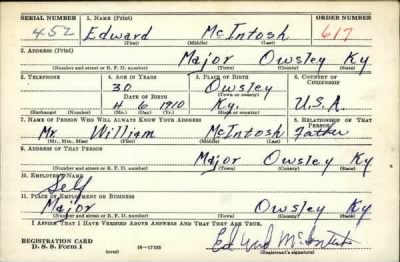 SERIAL NUMBER 1. NAME (Print) ORDER NUMBER
452 Edward McIntosh 617
(First) (Middle) (Last)
2. ADDRESS (Print)
Major Owsley Ky
(Number and street or R. F. D. number) (Town) (County) (State)
3. TELEPHONE 4. AGE IN YEARS 5. PLACE OF BIRTH 6. COUNTRY OF CITIZENSHIP
30 Owsley
DATE OF BIRTH (Town or county)
4 6 1910 Ky. U.S.A.
(Exchange) (Number) (Mo.) (Day) (Yr.) (State or country)
7. NAME OF PERSON WHO WILL ALWAYS KNOW YOUR ADDRESS 8. RELATIONSHIP OF THAT PERSON
Mr. William McIntosh Father
(Mr., Mrs., Miss) (First) (Middle) (Last)
9. ADDRESS OF THAT PERSON
Major Owsley Ky
(Number and street or R. F. D. number) (Town) (County) (State)
10. EMPLOYER'S NAME
Self
11. PLACE OF EMPLOYMENT OR BUSINESS
Major Owsley Ky
(Number and street or R. F. D. number) (Town) (County) (State)
I AFFIRM THAT I HAVE VERIFIED ABOVE ANSWERS AND THAT THEY ARE TRUE.
REGISTRATION CARD
D. S. S. Form 1 (over) 16—17105 Edward McIntosh
(Registrant's signature)